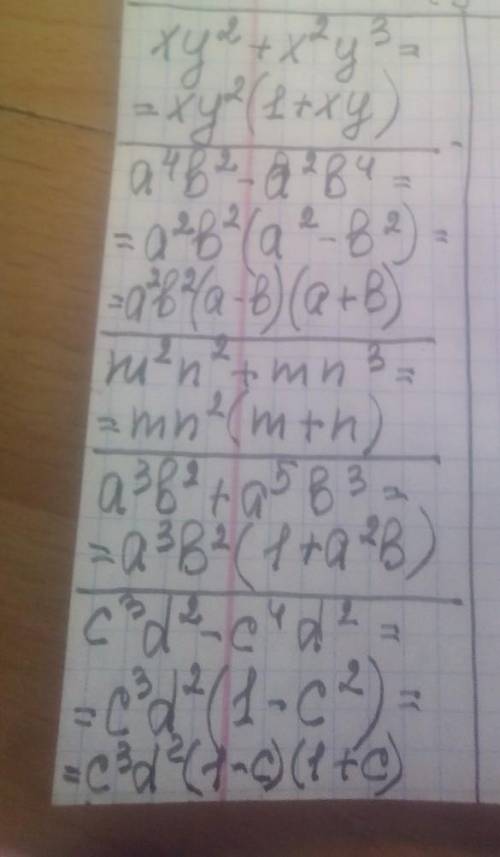 xy² + x²y³ =
= xy²(1 + xy)
a⁴b² - a²b⁴ =
= a²b²(a² - b²) =
= a²b²(a - b)(a + b)
m²n² + mn³ =
= mn²(m + n)
a³b² + a⁵b³ =
= a³b²(1 + a²b)
c³d² - c⁴d² =
= c³d²(1 - c²) =
= c³d²(1 - c)(1 + c)